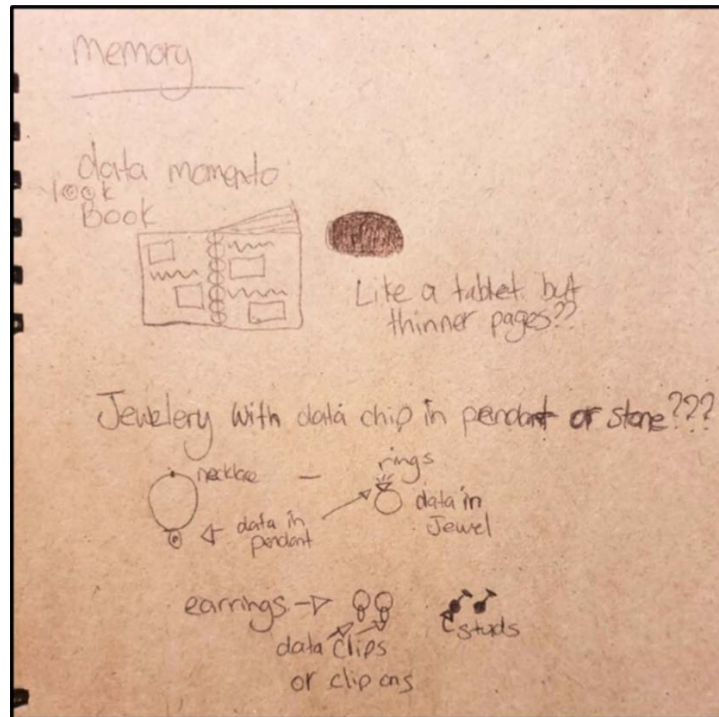 Memory
data momento
look
Book
Like a tablet but
thinner pages??
Jewelery with data chip in pendant or stone???
necklace
rings
data in
pendant
data in
Jewel
earrings
data clips
or clip ons
studs